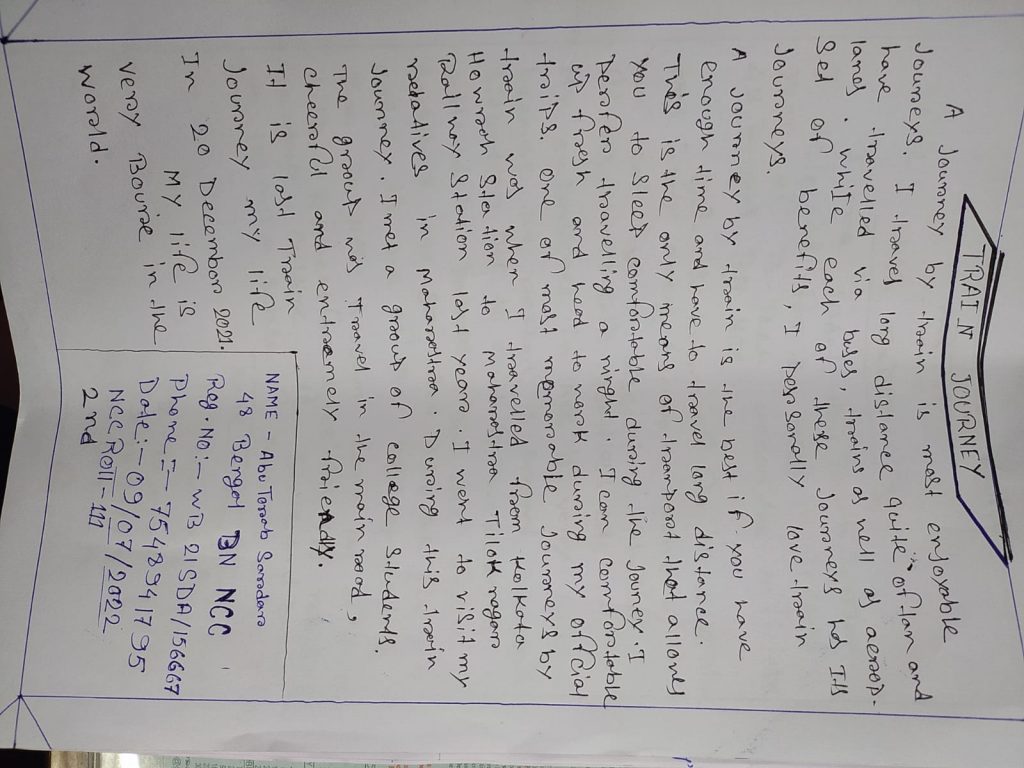 TRAIN JOURNEY
A Journey by train is most enjoyable
Journeys. I travel long distance quite oftan and
have travelled via buses, trains as well as aerop-
lans. while each of these Journeys has Its
Set of benefits, I personally love train
Journeys.
A Journey by train is the best if you have
enough time and have to travel long distance.
This is the only means of tranport that allows
you to sleep comfortable during the Jouney. I
Perfer travelling a ninght. I can comfortable
up fresh and head to work during my official
traips. one of most memorable Journeys by
train was when I travelled from kolkata
Howrah Station to maharastra Tilok nagar
Railway Station last years. I went to visit my
realatives in maharastra. During this train
Journey. I met a group of college Students.
The group was travel in the main road,
cheerful and entremely friendly.
It is last Train
Journey my life
In 20 December 2021.
My life is
very Bourise in the
world.
NAME - Abu Torab Sardar
48 Bengal BN NCC
Reg. No:- WB 21SDA/156667
Phone = - 7548941795
Date:- 09/07/2022
NCC Roll - 111
2nd